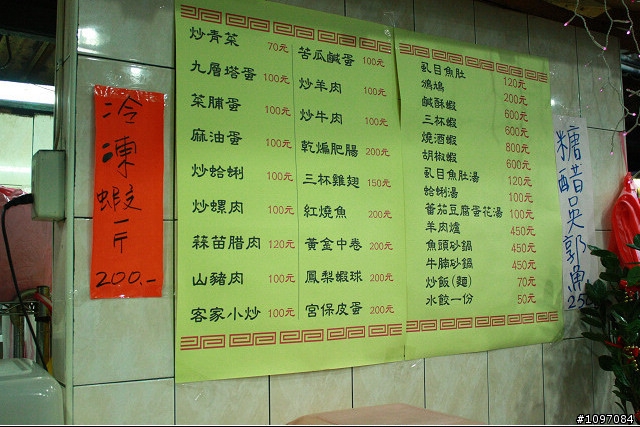 冷凍蝦一斤
200.-
炒青菜 70元
九層塔蛋 100元
菜脯蛋 100元
麻油蛋 100元
炒蛤蜊 100元
炒螺肉 100元
蒜苗腊肉 120元
山豬肉 100元
客家小炒 100元
苦瓜鹹蛋 100元
炒羊肉 100元
炒牛肉 100元
乾煸肥腸 200元
三杯雞翅 150元
紅燒魚 200元
黃金中卷 200元
鳳梨蝦球 200元
宮保皮蛋 200元
虱目魚肚 120元
鴆鳩 200元
鹹酥蝦 600元
三杯蝦 600元
燒酒蝦 800元
胡椒蝦 600元
虱目魚肚湯 120元
蛤蜊湯 100元
蕃茄豆腐蛋花湯 100元
羊肉爐 450元
魚頭砂鍋 450元
牛腩砂鍋 450元
炒飯(麵) 70元
水餃一份 50元
糖醋吳郭魚
#1097084